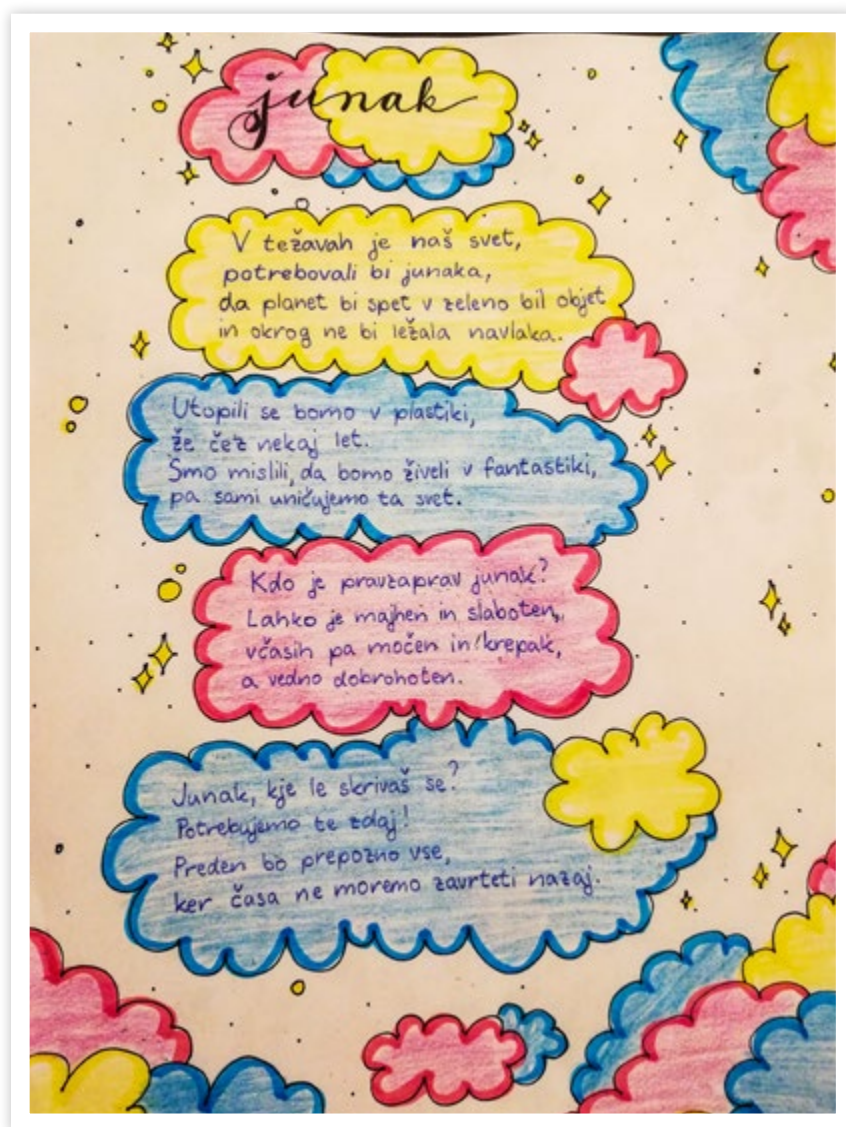 junak
V težavah je naš svet,
potrebovali bi junaka,
da planet bi spet v zeleno bil objet
in okrog ne bi ležala navlaka.
Utopili se bomo v plastiki,
že čez nekaj let.
Smo mislili, da bomo živeli v fantastiki,
pa sami uničujemo ta svet.
Kdo je pravzaprav junak?
Lahko je majhen in slaboten,
včasih pa močen in krepak,
a vedno dobrohoten.
Junak, kje le skrivaš se?
Potrebujemo te zdaj!
Preden bo prepozno vse,
ker časa ne moremo zavrteti nazaj.